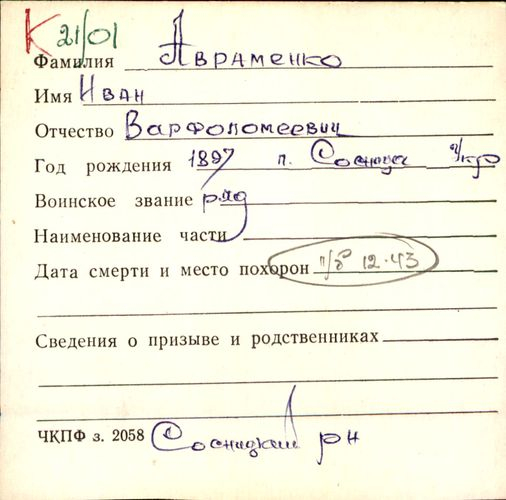 К 21/01
Фамилия Авраменко
Имя Иван
Отчество Варфоломеевич
Год рождения 1897 п. Сосница
Воинское звание ряд
Наименование части
Дата смерти и место похорон п/б 12.43
Сведения о призыве и родственниках
ЧКПФ з. 2058 Сосницкий рн